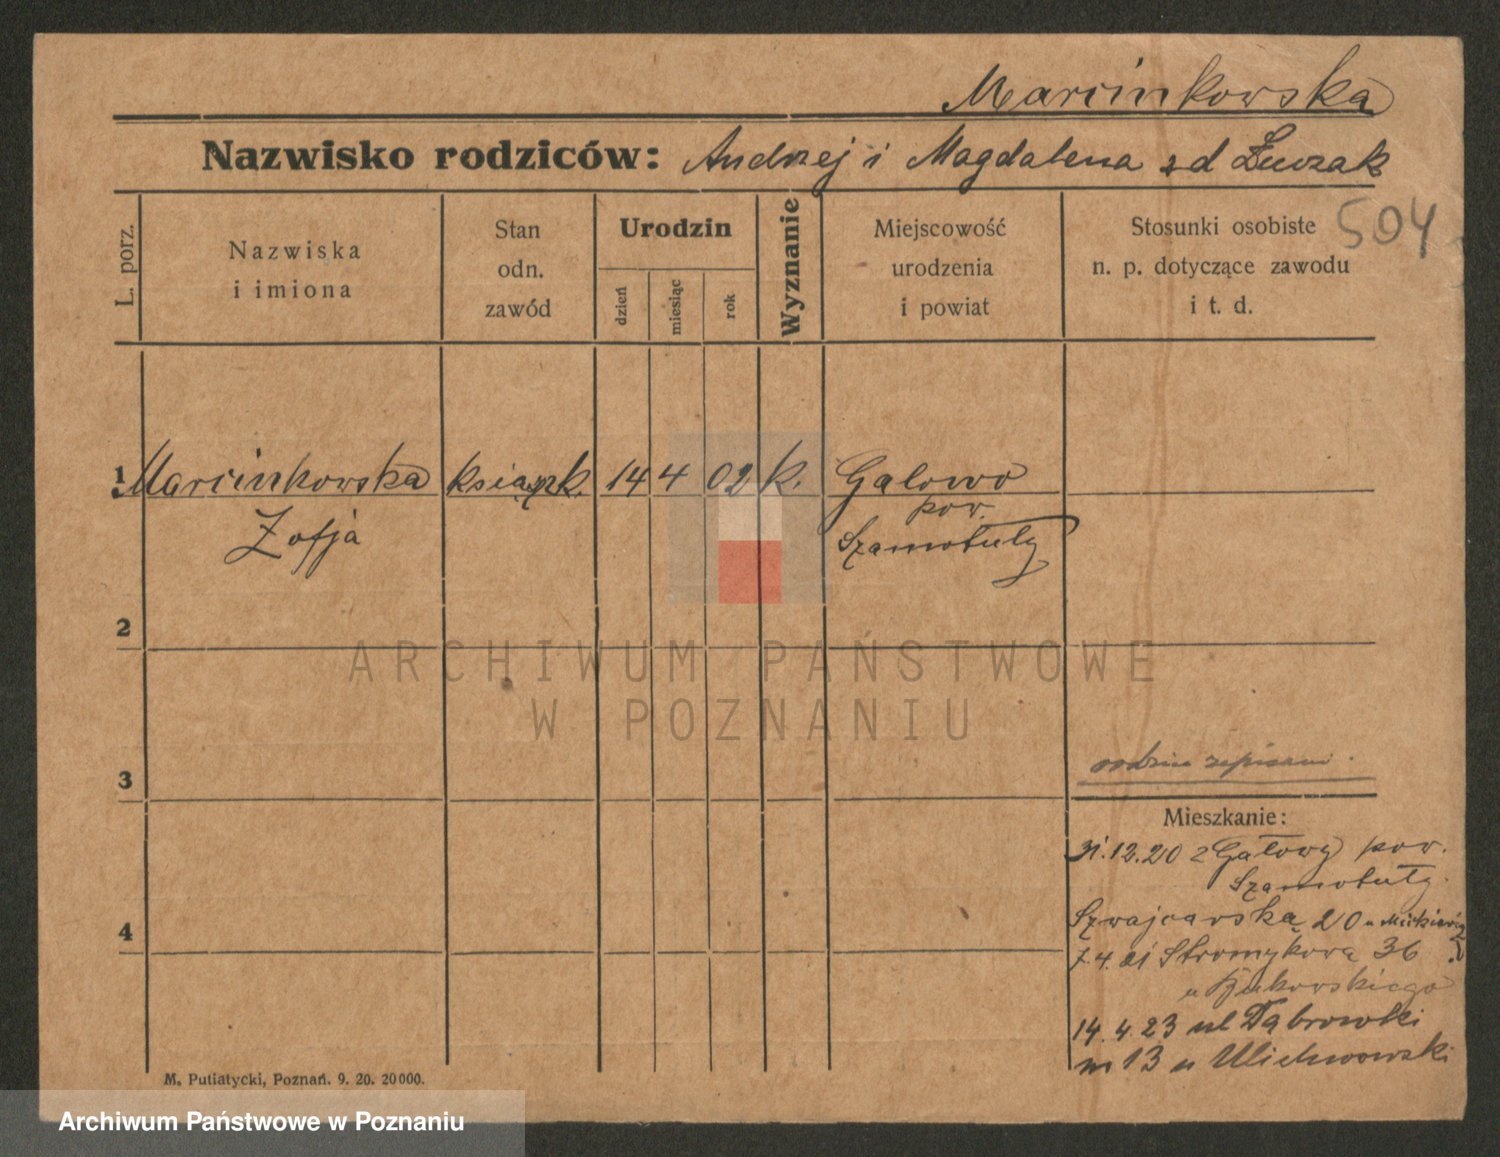 Marcinkowska
Nazwisko rodziców: Andrzej i Magdalena zd
504
L. porz.
Nazwiska
i imiona
Stan
odn.
zawód
Urodzin
dzień
miesiąc
rok
Wyznanie
Miejscowość
urodzenia
i powiat
Stosunki osobiste
n. p. dotyczące zawodu
i t. d.
1 Marcinkowska książk. 14 4 02 k. Galowo
pow.
Zofja Szamotuły
2
ARCHIWUM PAŃSTWOWE
W POZNANIU
3
Mieszkanie:
31.12.20 z Gałowy pow.
Szamotuły.
Szwajcarska 20 u
7.4.21 Stromykowa 36
u Bukowskiego
4
14.4.23 ul Dąbrowki
m 13 u
M. Putiatycki, Poznań. 9. 20. 20000.
Archiwum Państwowe w Poznaniu